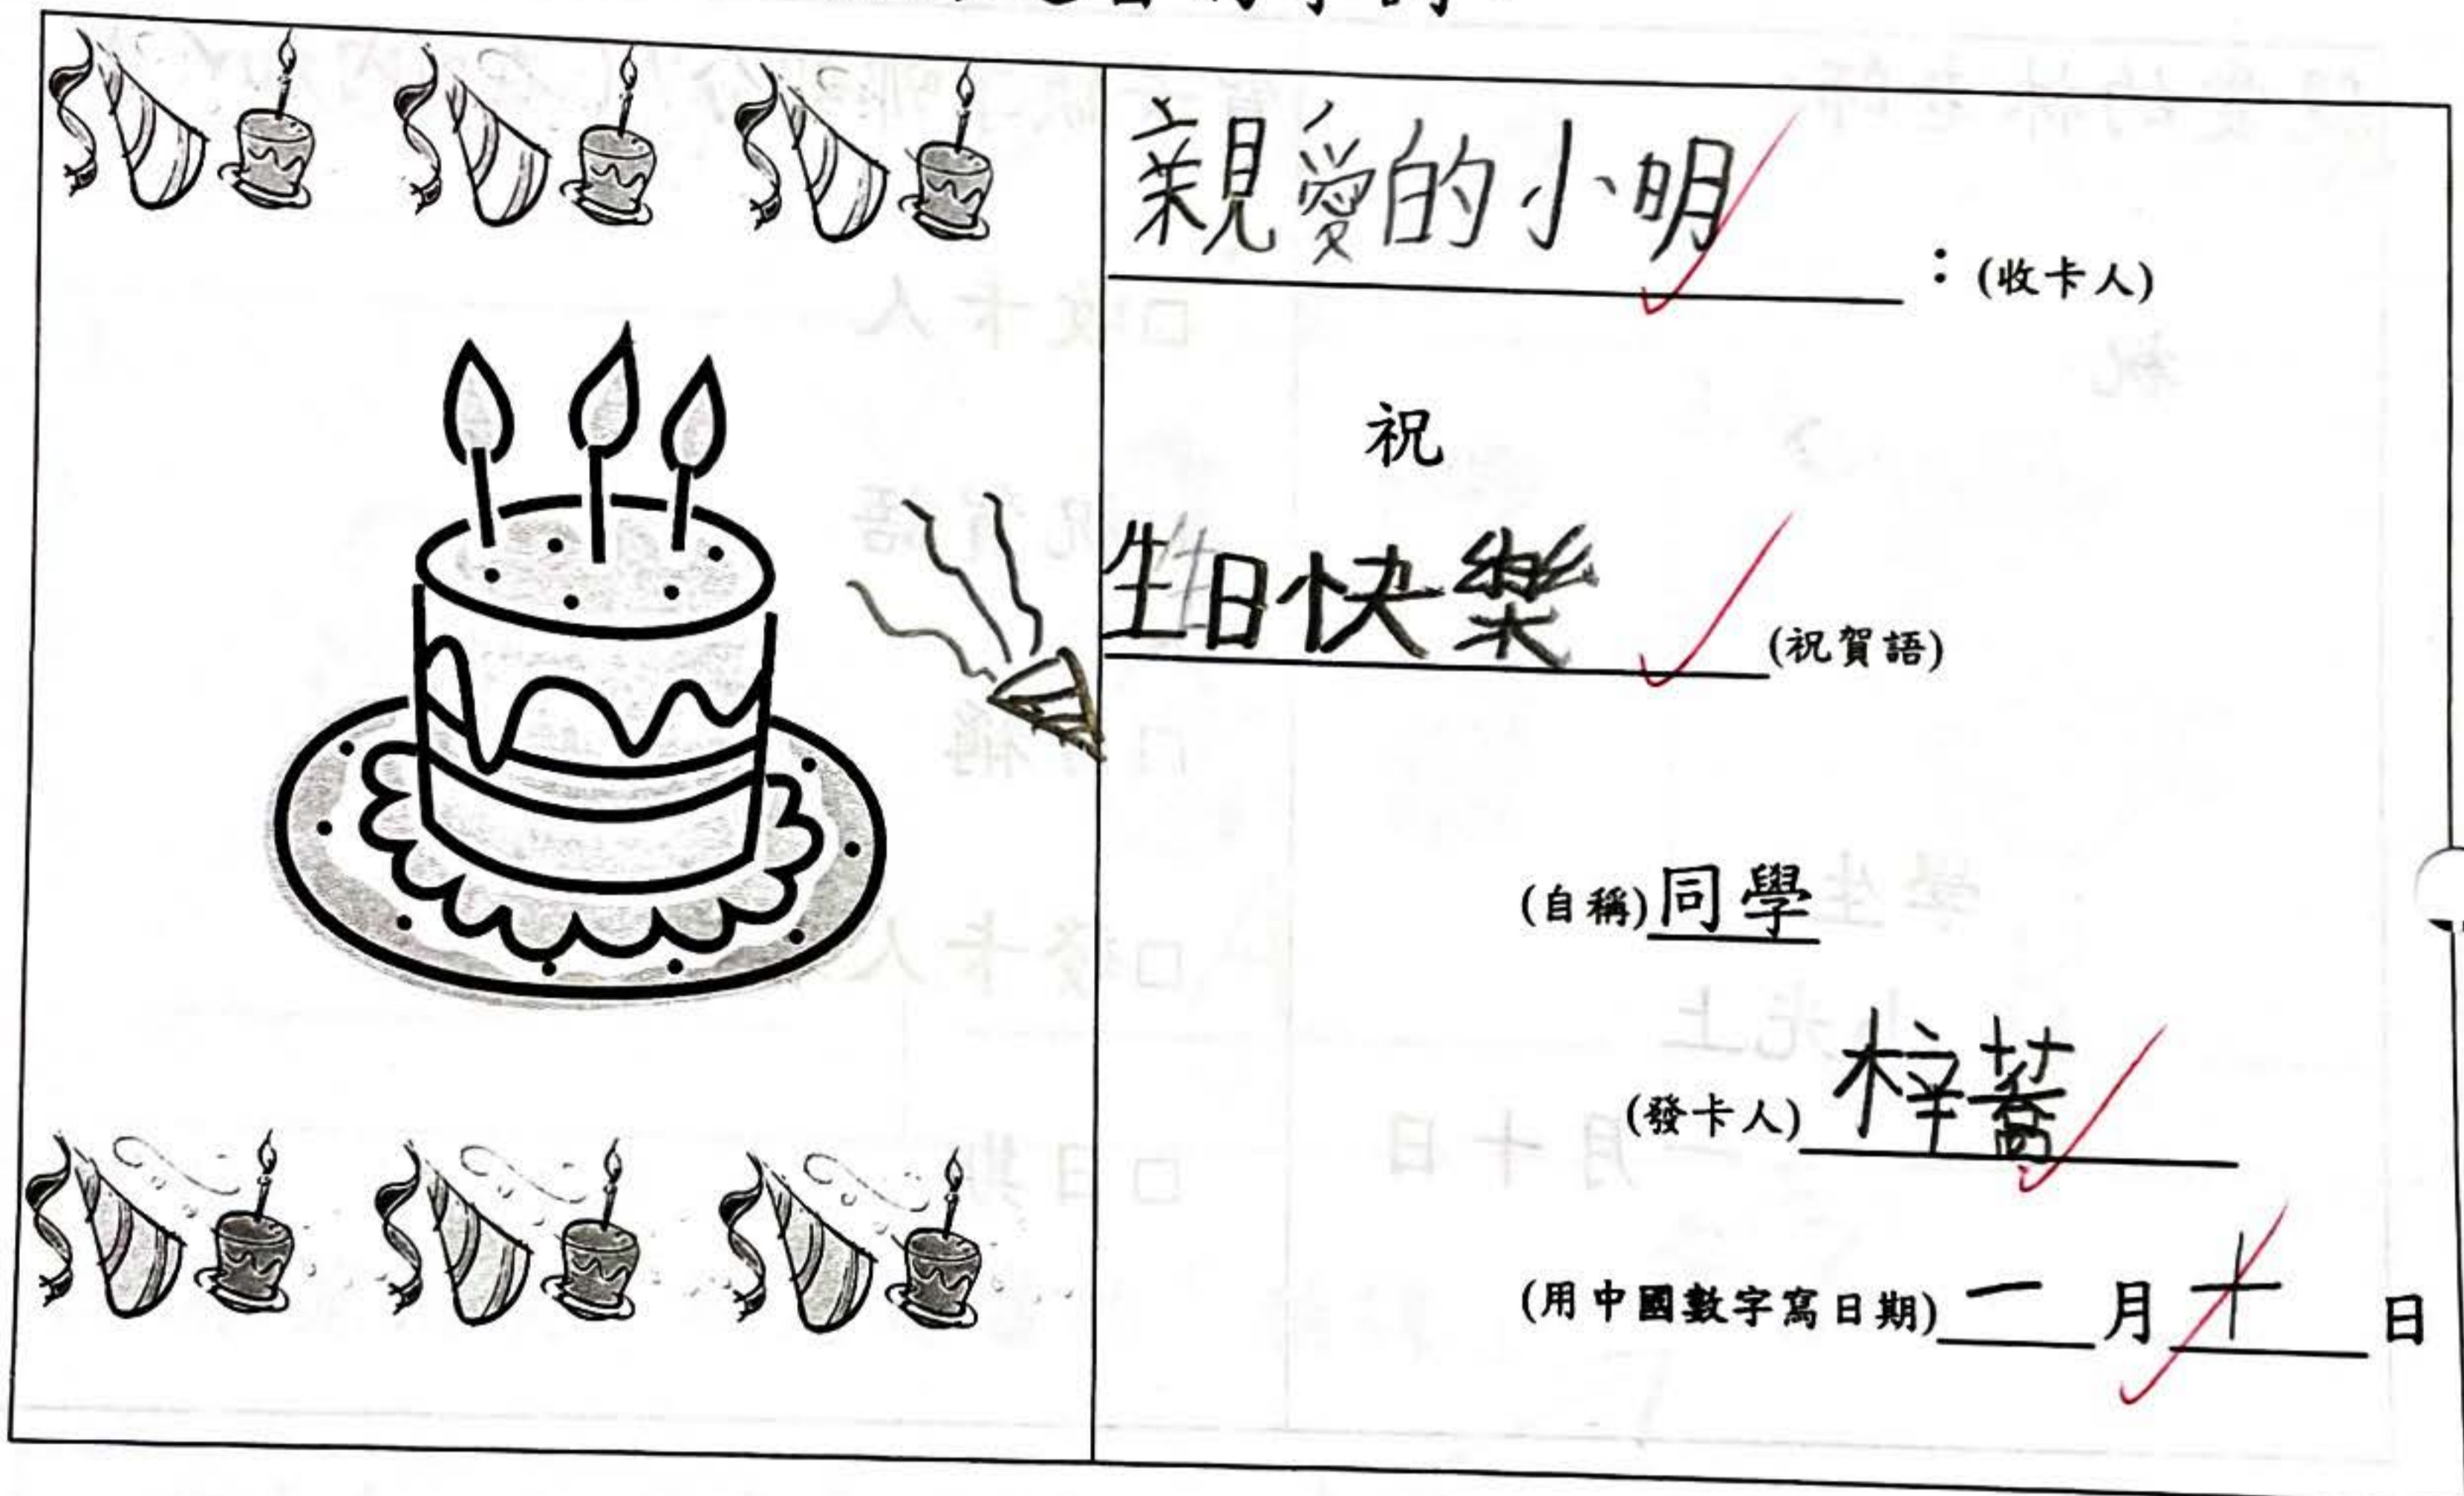 親愛的小明：(收卡人)
祝
生日快樂(祝賀語)
(自稱)同學
(發卡人)梓蕎
(用中國數字寫日期)一月十日